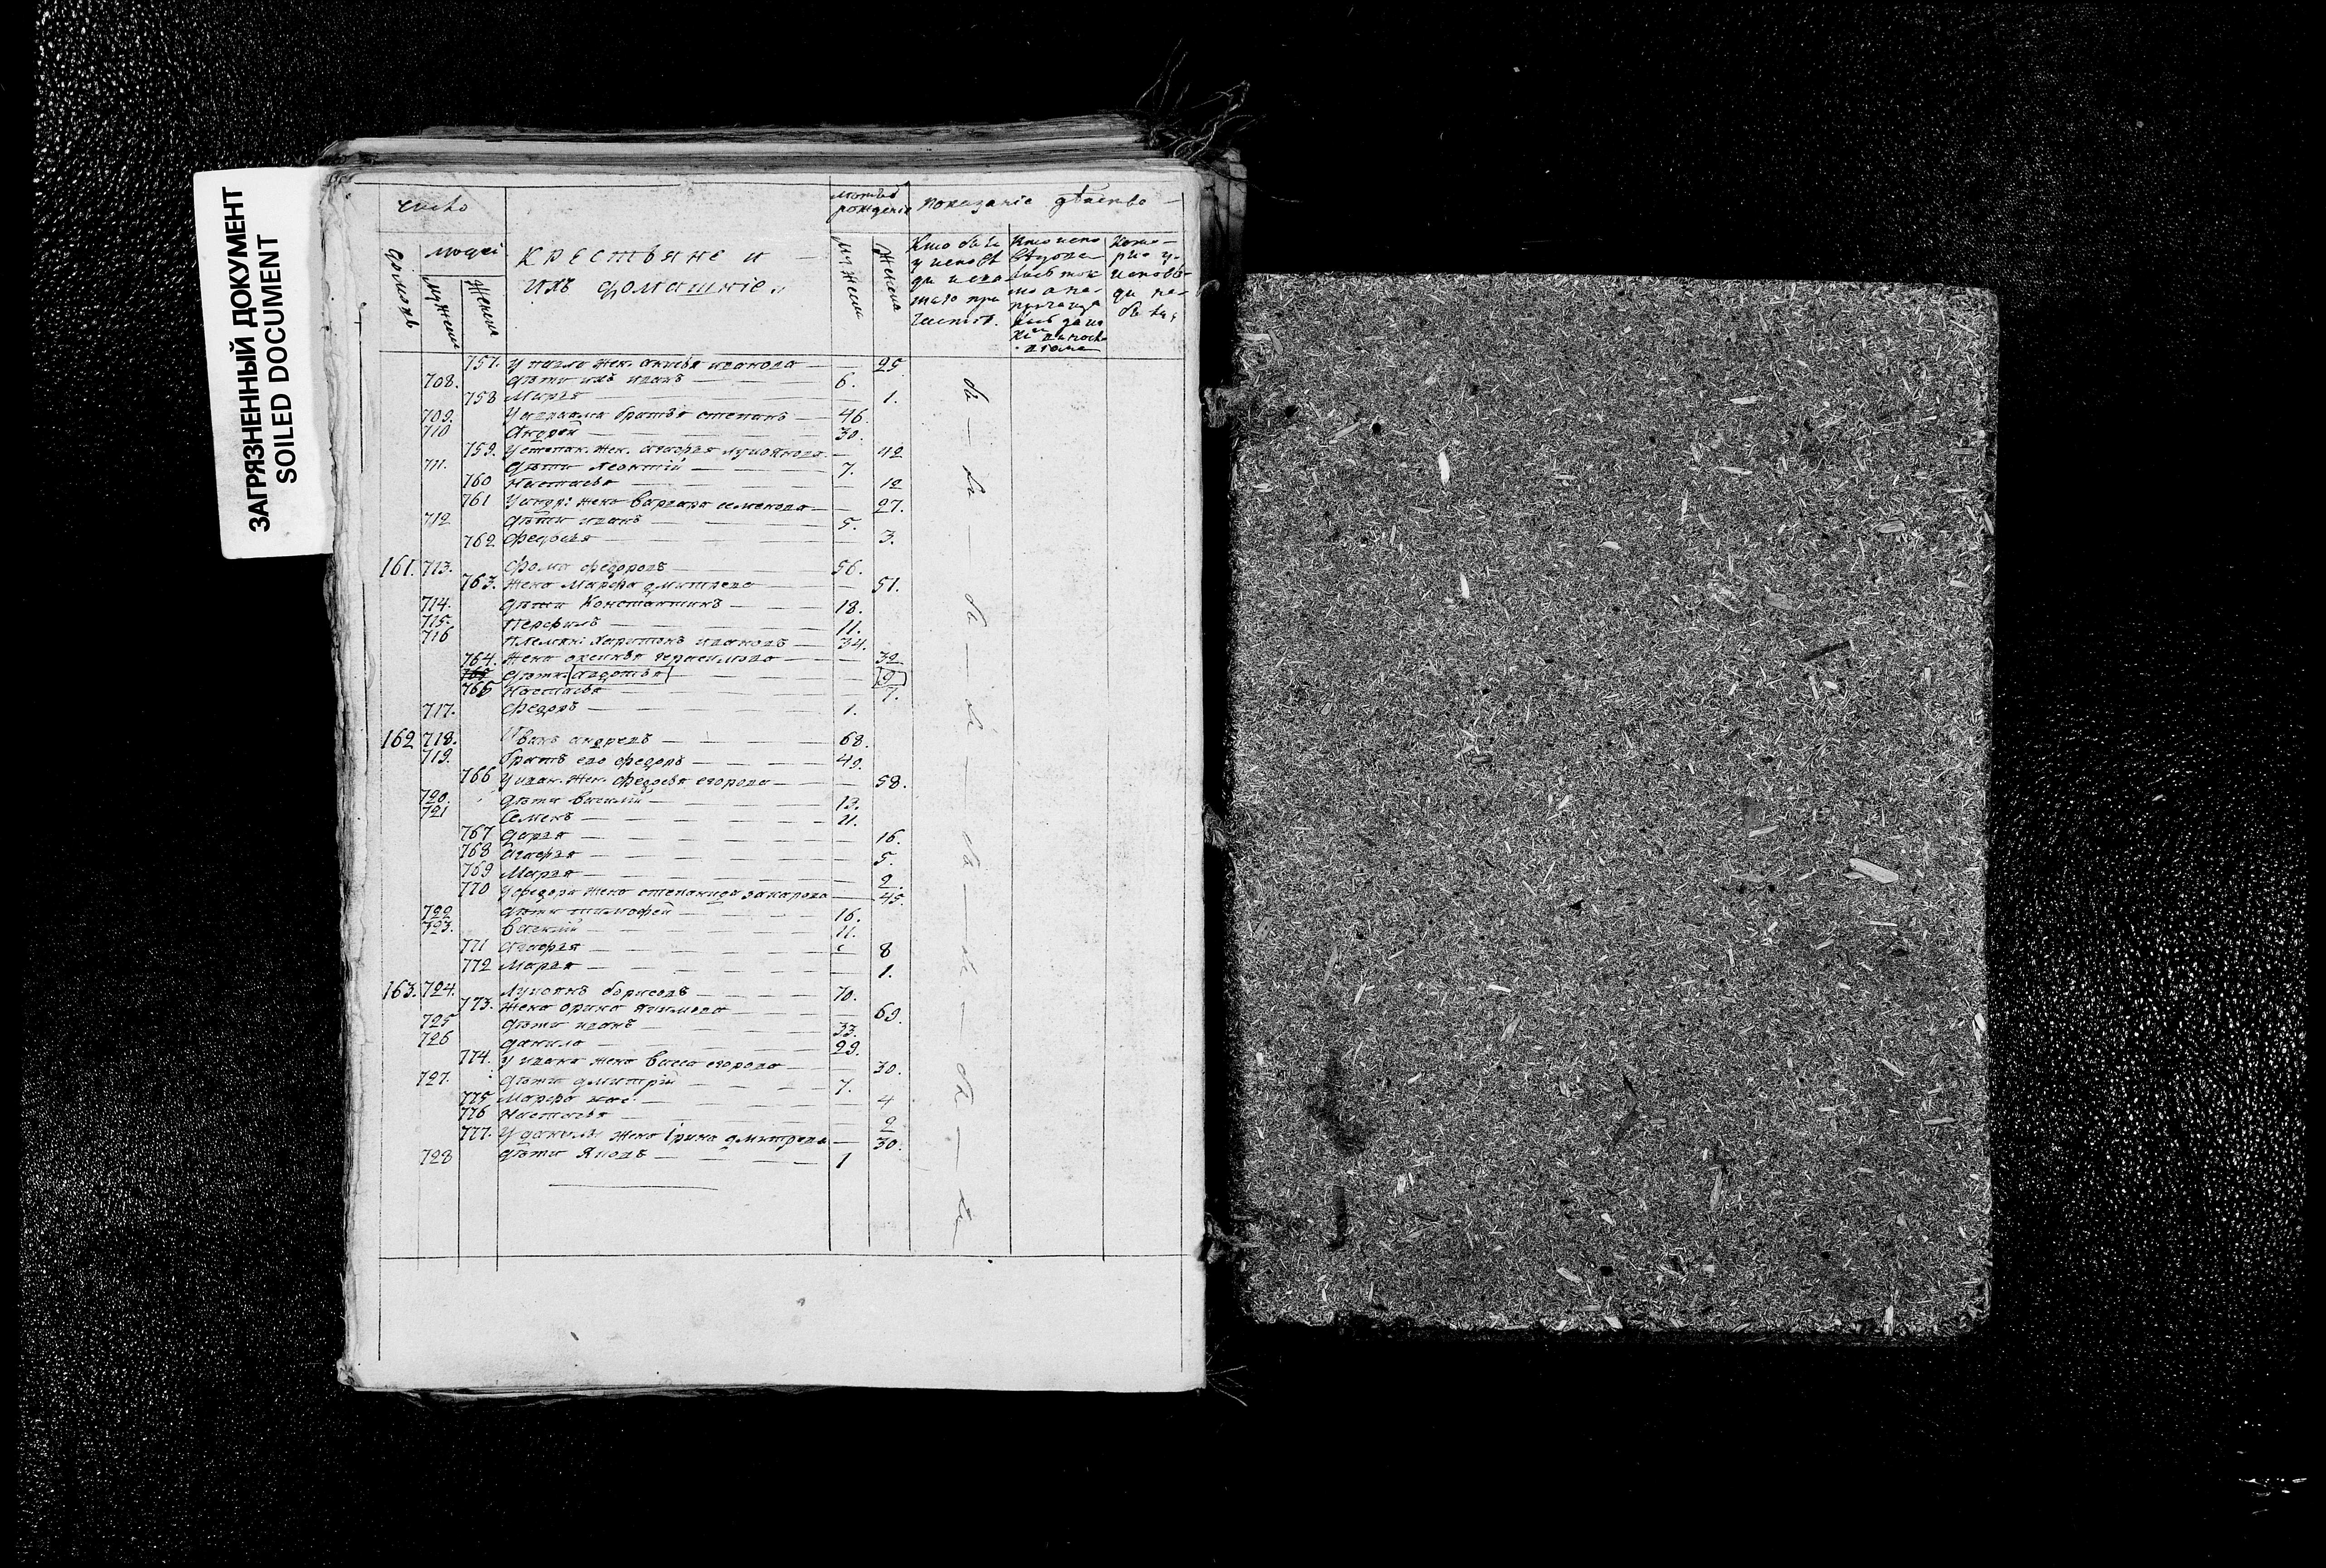 ЗАГРЯЗНЕННЫЙ ДОКУМЕНТ
SOILED DOCUMENT
число
рожденіе показаніе
людеі
крестьяне и
ихъ домашніе
мужеска женска
757. у павла жен. анисья иванова — 25
708. дѣти ихъ иванъ — 6.
758 Марья — 1.
709. братья степанъ — 46.
710 Андрей — 30.
759. У степан. жен. агафья лукоянова — 42
711. дѣти леонтій — 7.
760 Настасья — 12
761 У андр: жена варвара семенова — 27.
712 дѣти иванъ — 5.
762 федосья — 3.
161. 713. фома федоровъ — 56.
763. жена Марфа дмитрева — 51.
714. дѣти Константинъ — 18.
715. Перфилъ — 11.
716 племян: харитонъ ивановъ — 34.
764. жена аксинья герасимова — 32
дѣти авдотья — 9
765 Настасья — 7.
717. федоръ — 1.
162 718. Іванъ андревъ — 68.
719. братъ ево федоръ — 49.
766 у иван. жен. федосья егорова — 58.
720. дѣти василій — 13.
721 Семенъ — 11.
767 дарья — 16.
768 агафья — 5.
769 Марья — 2.
770 у федора жена степанида захарова — 45.
722 дѣти тимофей — 16.
723. василій — 11.
771 агафья — 8
772 Марья — 1.
163. 724. Лукоянъ борисовъ — 70.
773. жена орина якимова — 69.
725 дѣти иванъ — 33.
726 данило — 29.
774. у ивана жена васса егорова — 30.
727. дѣти дмитрій — 7.
775 Марфа — 4
776 Настасья — 2
777. У данилы жена Ірина дмитрева — 30.
728 дѣти Яковъ — 1